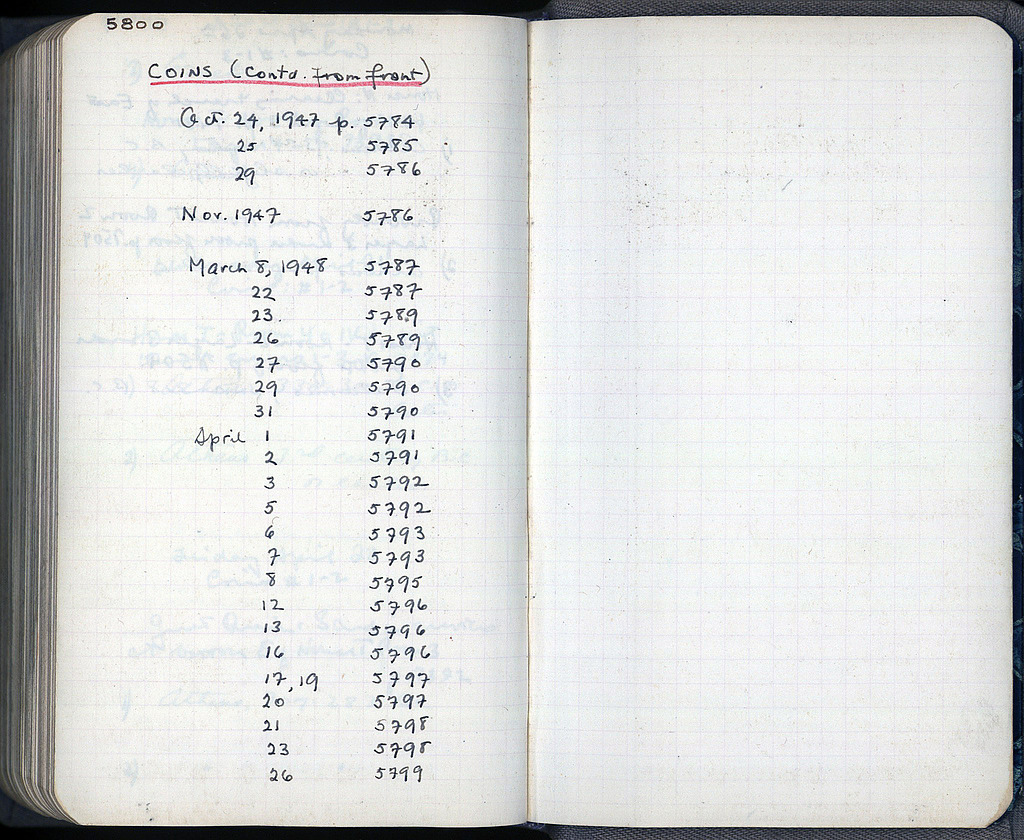 5800
COINS (Contd. from front)
Oct. 24, 1947 p. 5784
25 5785
29 5786
Nov. 1947 5786
March 8, 1948 5787
22 5787
23. 5789
26 5789
27 5790
29 5790
31 5790
April 1 5791
2 5791
3 5792
5 5792
6 5793
7 5793
8 5795
12 5796
13 5796
16 5796
17, 19 5797
20 5797
21 5798
23 5798
26 5799